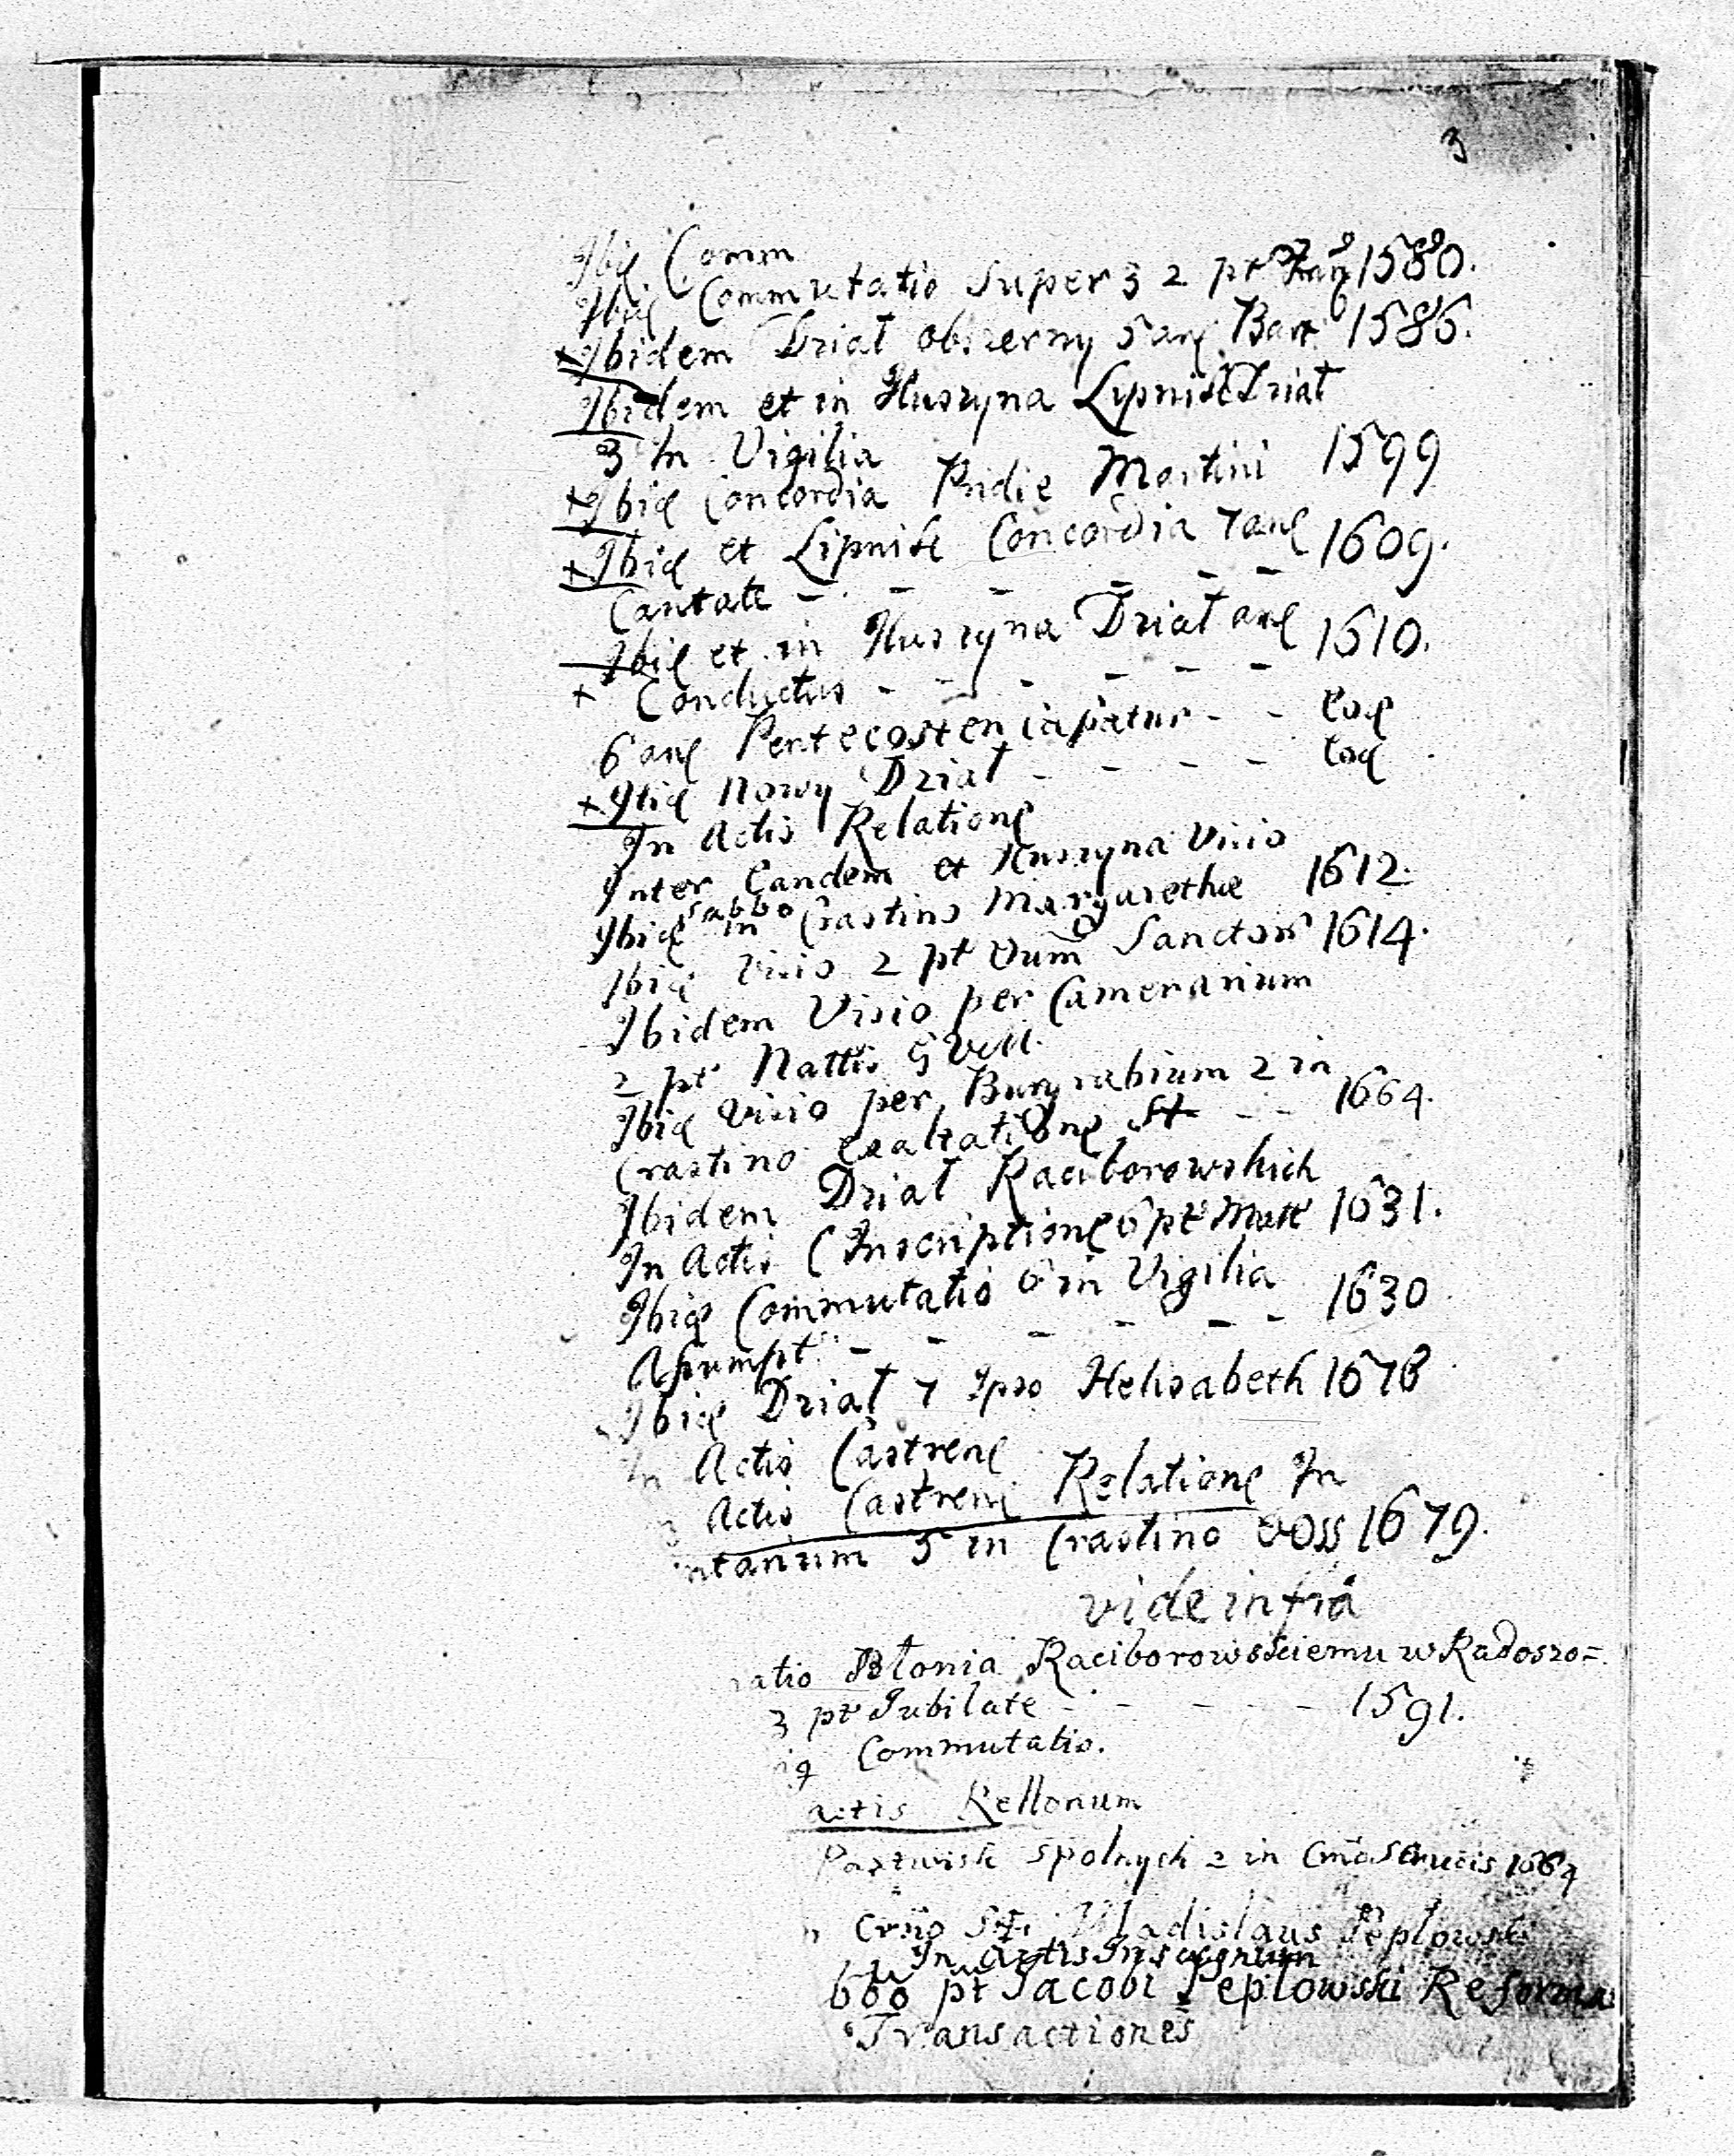 3
Ibid Comm
Ibid Commutatio super 3 2 pt 1580.
+ Ibidem Dział obszerny 5 an Bart 1586.
Ibidem et in Huszyna Lipnisk Dział
3 In Vigilia
+ Ibid Concordia Pridie Martini 1599
+ Ibid et Lipnisk Concordia 7 an 1609.
Cantate - - - - - -
Ibid et in Huszyna Dział an 1610.
+ Conductus - - - - - -
6 an Pentecosten capatur - - eod
+ Ibid nowy Dział - - - - eod
In Actis Relation
Inter Eandem et Huszyna Visio
Ibid Sabbo in Crastino Margarethæ 1612.
Ibid Visio 2 pt Oum Sanctor 1614.
Ibidem Visio per Camerarium
2 pt Nattis
Ibid Visio per Burgrabium 2 in
Crastino Exaltation St - - 1664.
Ibidem Dział Raciborowskich
In Actis Inscription 6 pt Matt 1631.
Ibid Commutatio 6 in Vigilia 1630
Assumpt - - - - - -
Ibid Dział 7 Ipso Helisabeth 1678
In Actis Castren
Actis Castren Relation In
ntarium 5 in Crastino OOSS 1679.
vide infra
atio Błonia Raciborowskiemu w Radoszo=
3 pt Jubilate - - - - - 1591.
Commutatio.
actis Rellonum
Pastwisk spolnych 2 in Crucis 1664
Crno Sti Vladislaus Peplowski
In Actis
6to pt Jacobi Peplowski Reforma
Transactiones